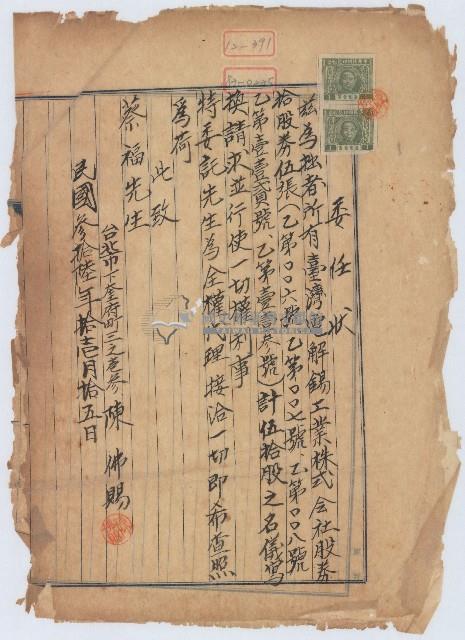 12-391
委任狀
茲為拙者所有臺灣電解錫工業株式会社股券
拾股券伍張(乙第〇〇六號乙第〇〇七號、乙第〇〇八號
乙第壹壹貳號乙第壹壹叁號)計伍拾股之名儀寫
換請求並行使一切權利事
特委託先生為全權代理接洽一切即希查照
為荷
此致
蔡福先生
台北市下奎府町三之壱参 陳佛賜
民國參拾陸年拾壱月拾五日